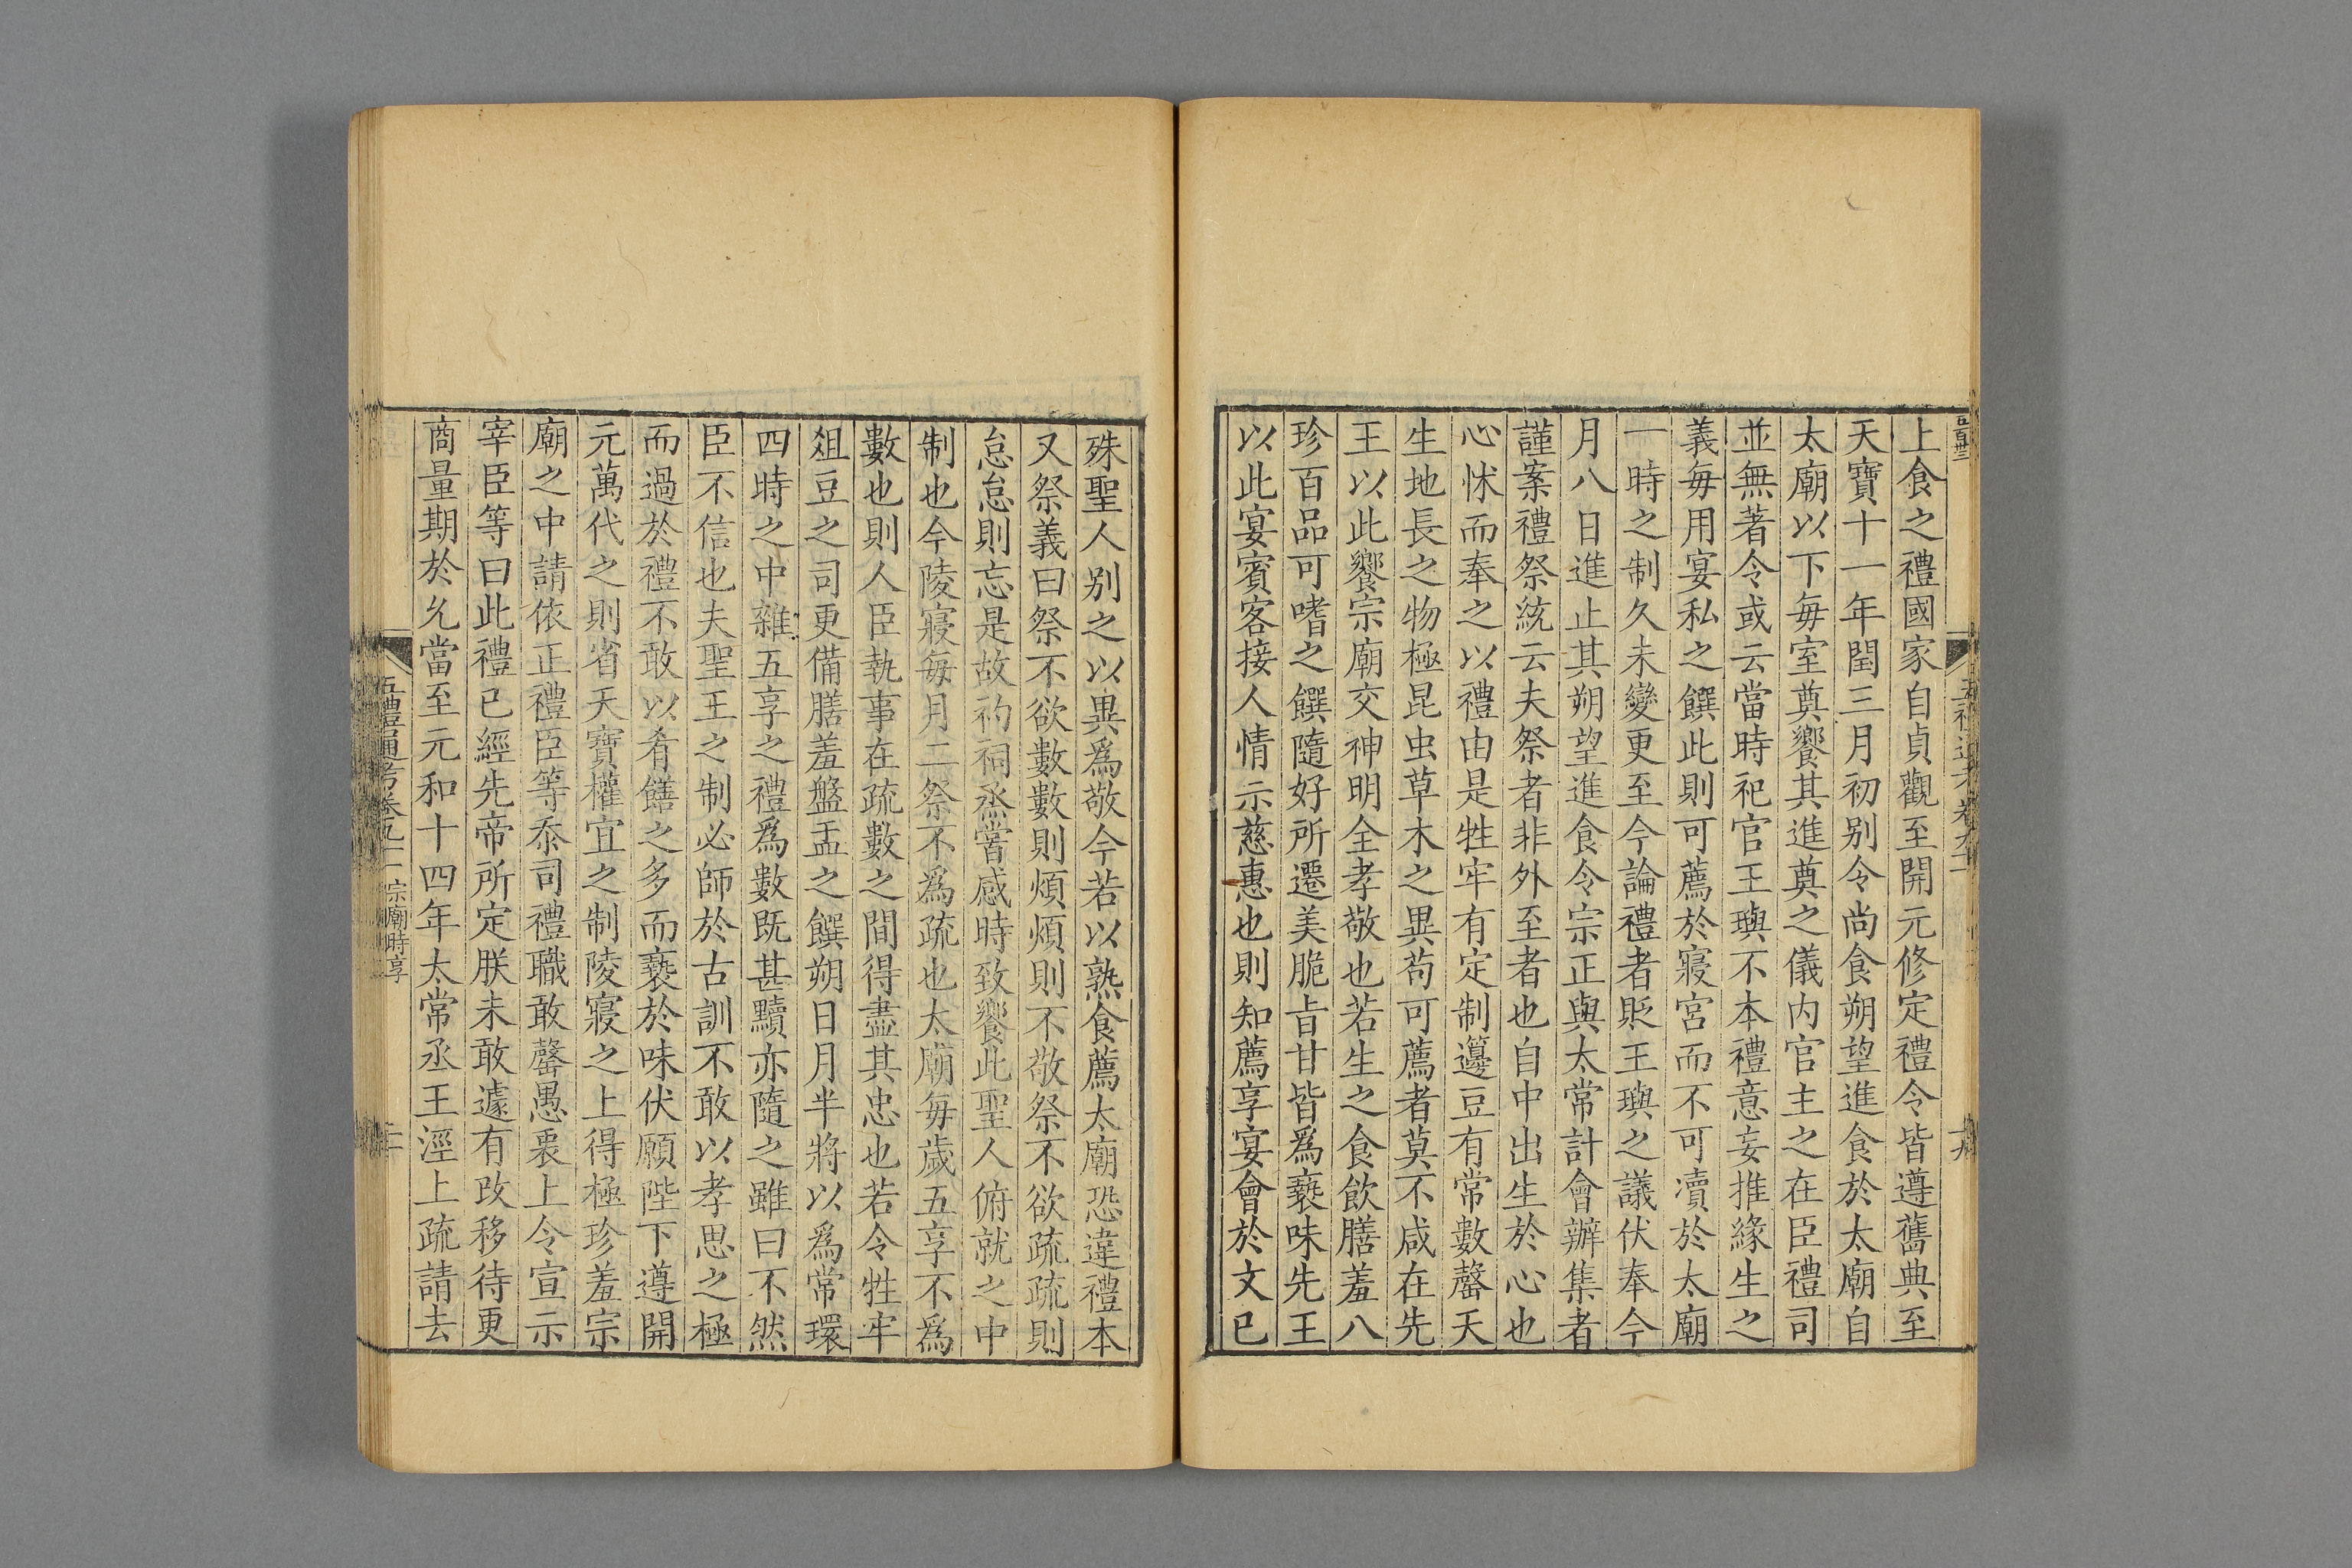 上食之禮國家自貞觀至開元修定禮令皆遵舊典至
天寶十一年閏三月初别令尚食朔望進食於太廟自
太廟以下每室奠饗其進奠之儀内官主之在臣禮司
並無著令或云當時祀官王璵不本禮意妄推緣生之
義每用宴私之饌此則可薦於寢宮而不可瀆於太廟
一時之制久未變更至今論禮者貶王璵之議伏奉今
月八日進止其朔望進食令宗正與太常計會辦集者
謹案禮祭統云夫祭者非外至者也自中出生於心也
心怵而奉之以禮由是牲牢有定制籩豆有常數罄天
生地長之物極昆虫草木之異苟可薦者莫不咸在先
王以此饗宗廟交神明全孝敬也若生之食飲膳羞八
珍百品可嗜之饌隨好所遷美脆旨甘皆爲䙝味先王
以此宴賓客接人情示慈惠也則知薦享宴會於文已
殊聖人别之以異爲敬今若以熟食薦太廟恐違禮本
又祭義曰祭不欲數數則煩煩則不敬祭不欲疏疏則
怠怠則忘是故礿祠烝嘗感時致饗此聖人俯就之中
制也今陵寢每月二祭不爲疏也太廟每歲五享不爲
數也則人臣執事在疏數之間得盡其忠也若令牲牢
俎豆之司更備膳羞盤盂之饌朔日月半將以爲常環
四時之中雜五享之禮爲數既甚黷亦隨之雖曰不然
臣不信也夫聖王之制必師於古訓不敢以孝思之極
而過於禮不敢以肴饍之多而䙝於味伏願陛下遵開
元萬代之則省天寶權宜之制陵寢之上得極珍羞宗
廟之中請依正禮臣等忝司禮職敢罄愚衷上令宣示
宰臣等曰此禮已經先帝所定朕未敢遽有改移待更
商量期於允當至元和十四年太常丞王涇上疏請去
五禮通考卷九十一 宗廟時享